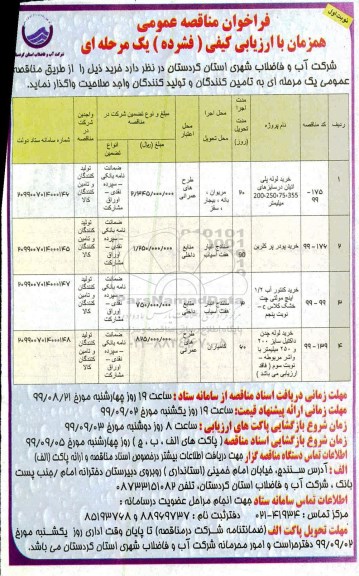 نوبت اول
فراخوان مناقصه عمومی
همزمان با ارزیابی کیفی ( فشرده ) یک مرحله ای
شرکت آب و فاضلاب شهری استان کردستان در نظر دارد خرید ذیل را از طریق مناقصه
عمومی یک مرحله ای به تامین کنندگان و تولید کنندگان واجد صلاحیت واگذار نماید.
ردیف
کد مناقصه
نام پروژه
مدت اجرا مدت تحویل (روز)
محل اجرا محل تحویل
محل اعتبار
مبلغ و نوع تضمین شرکت در مناقصه
مبلغ (ریال)
انواع تضمین
واجدین شرکت در مناقصه
شماره سامانه ستاد دولت
۱
۱۷۵ - ۹۹
خرید لوله پلی اتیلن درسایزهای 200-250-75-355 میلیمتر
مریوان ، بانه ، بیجار ، سقز
طرح های عمرانی
ضمانت نامه بانکی – سپرده نقدی – اوراق مشارکت
تولید کنندگان و تامین کنندگان کالا
۲
۱۷۶ - ۹۹
خرید پودر پر کلرین
90
منابع داخلی
۱/۶۵۰/۰۰۰/۰۰۰
ضمانت نامه بانکی – سپرده نقدی – اوراق مشارکت
تولید کنندگان و تامین کنندگان کالا
۳
۹۹ - ۹۹
خرید کنتور آب ۱/۲ اینچ مولتی جت خشک کلاس c - نوبت پنجم
منابع داخلی
۷۵۰/۰۰۰/۰۰۰
ضمانت نامه بانکی – سپرده نقدی – اوراق مشارکت
تولید کنندگان و تامین کنندگان کالا
۴
۱۳۹ - ۹۹
خرید لوله چدن داکتیل سایز ۲۰۰ و ۲۵۰ میلیمتر با واشر مربوطه – نوبت سوم ( فاقد ارزیابی می باشد )
۶۰
کامیاران
طرح های عمرانی
ضمانت نامه بانکی – سپرده نقدی – اوراق مشارکت
تولید کنندگان و تامین کنندگان کالا
مهلت زمانی دریافت اسناد مناقصه از سامانه ستاد : ساعت ۱۹ روز چهارشنبه مورخ ۹۹/۰۸/۲۱
مهلت زمانی ارائه پیشنهاد قیمت: ساعت ۱۹ روز یکشنبه مورخ ۹۹/۰۹/۰۲
زمان شروع بازگشایی پاکت های ارزیابی : ساعت ۸ روز دوشنبه مورخ ۹۹/۰۹/۰۳
زمان شروع بازگشایی اسناد مناقصه ( پاکت های الف ، ب ، ج ) روز چهارشنبه مورخ ۹۹/۰۹/۰۵
اطلاعات تماس دستگاه مناقصه گزار جهت دریافت اطلاعات بیشتر درخصوص اسناد مناقصه و ارائه پاکت (الف)
الف : آدرس سنندج، خیابان امام خمینی (استانداری ) روبروی دبیرستان دخترانه امام /جنب پست
بانک ، شرکت آب و فاضلاب استان کردستان، تلفن ۰۸۷۳۳۳۵۱۰۸۲
اطلاعات تماس سامانه ستاد جهت انجام مراحل عضویت درسامانه :
مرکز تماس : ۴۱۹۳۴-۰۲۱ دفترثبت نام : ۸۸۹۶۹۷۳۷ و ۸۵۱۹۳۷۶۸
مهلت تحویل پاکت الف (ضمانتنامه شرکت درمناقصه) تا پایان وقت اداری روز یکشنبه مورخ
۹۹/۰۹/۰۲ دفترحراست و امور محرمانه شرکت آب و فاضلاب شهری استان کردستان می باشد.